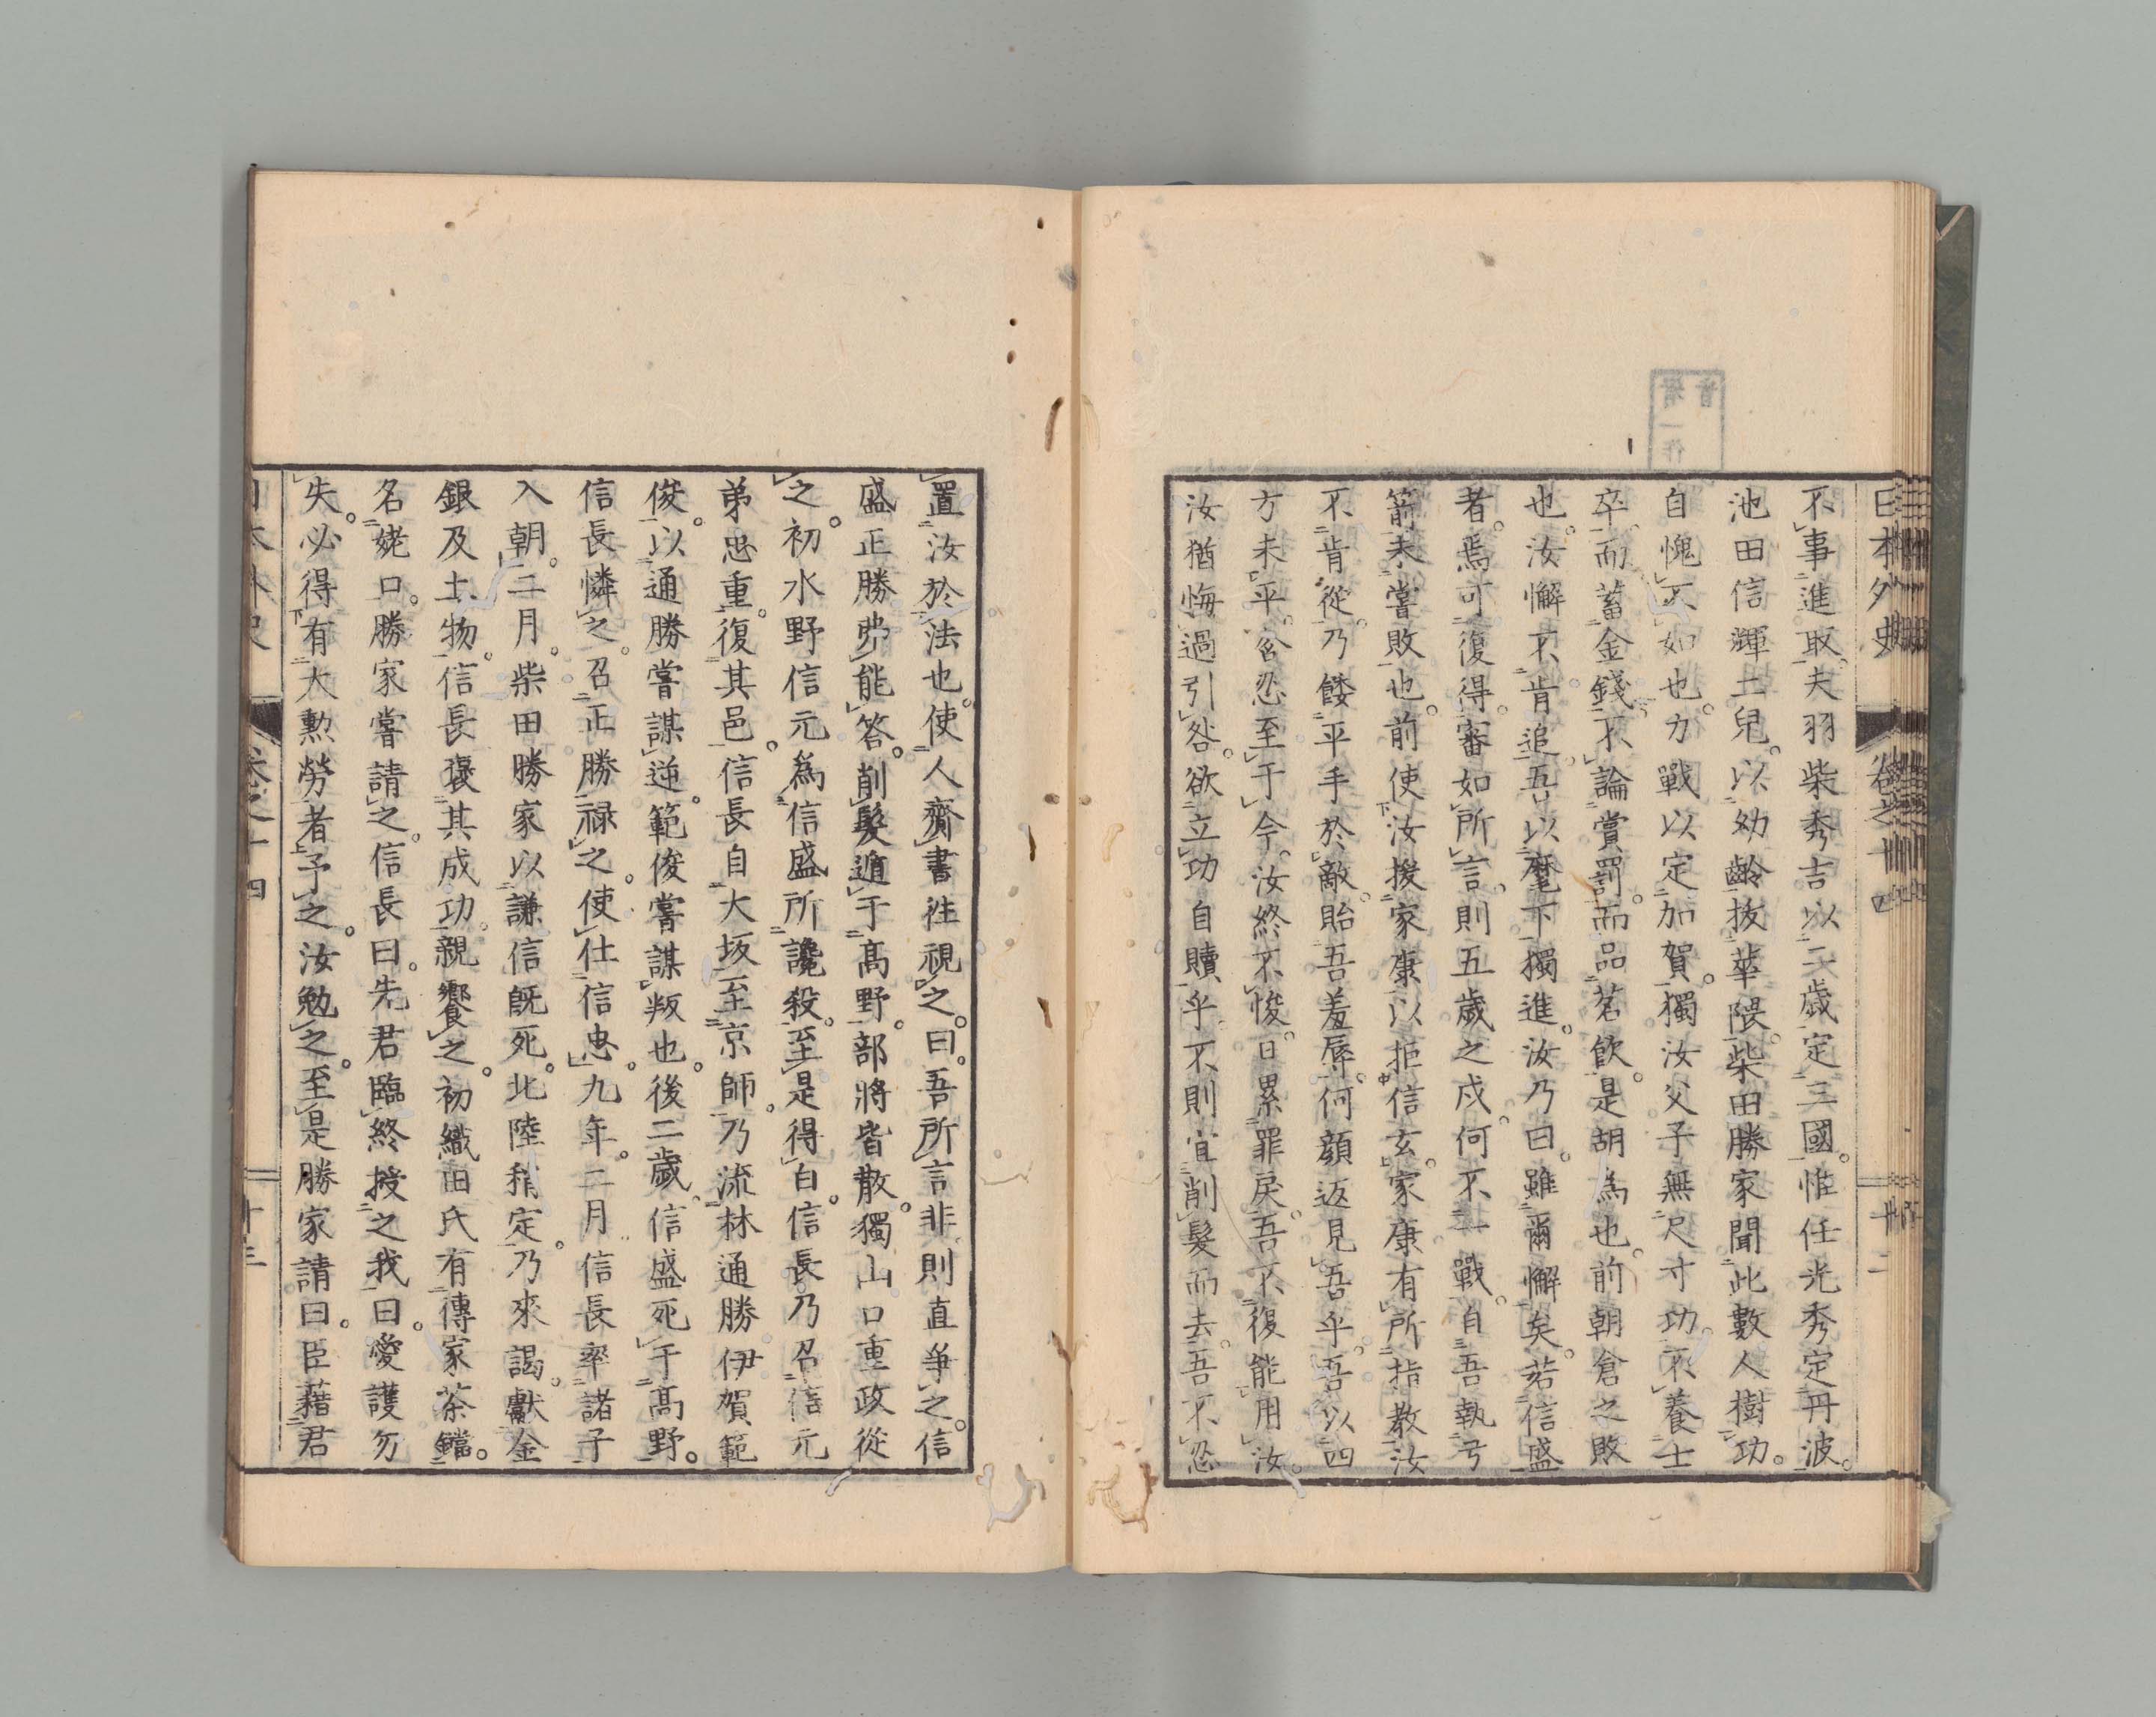 日本外史 卷之十四 十二
不事進取。夫羽柴秀吉以二歲定三國。惟任光秀定丹波。
池田信輝土兒。以幼齡拔華隈。柴田勝家聞此數人樹功。
自愧不如也。力戰以定加賀。獨汝父子無尺寸功。不養士
卒。而蓄金錢。不論賞罰。而品茗飮。是胡爲也。前朝倉之敗
也。汝懈不肯追。吾以麾下獨進。汝乃曰。雖爾懈矣。若信盛
者。焉可復得。審如所言。則五歲之戍。何不一戰。自吾執弓
箭。未嘗敗也。前使汝援家康以拒信玄。家康有所指教。汝
不肯從。乃餧平手於敵。貽吾羞辱。何顏返見吾乎。吾以四
方未平。含忍至于今。汝終不悛。日累罪戾。吾不復能用汝。
汝猶悔過引咎。欲立功自贖乎。不則宜削髮而去。吾不忍
置汝於法也。使人齎書往視之。曰。吾所言非則直爭之。信
盛正勝弗能答。削髮遁于髙野。部將皆散。獨山口重政從
之。初水野信元爲信盛所讒殺。至是得白。信長乃召信元
弟忠重。復其邑。信長自大坂至京師。乃流林通勝伊賀範
俊。以通勝嘗謀逆。範俊嘗謀叛也。後二歲。信盛死于髙野。
信長憐之。召正勝祿之。使仕信忠。九年。二月信長率諸子
入朝。三月。柴田勝家以謙信旣死。北陸稍定。乃來謁。獻金
銀及土物。信長褒其成功。親饗之。初織田氏有傳家茶鐺。
名姥口。勝家嘗請之。信長曰。先君臨終授之我。曰。愛護勿
失。必得有大勲勞者予之。汝勉之。至是勝家請曰。臣藉君
日本外史 卷之十四 十三